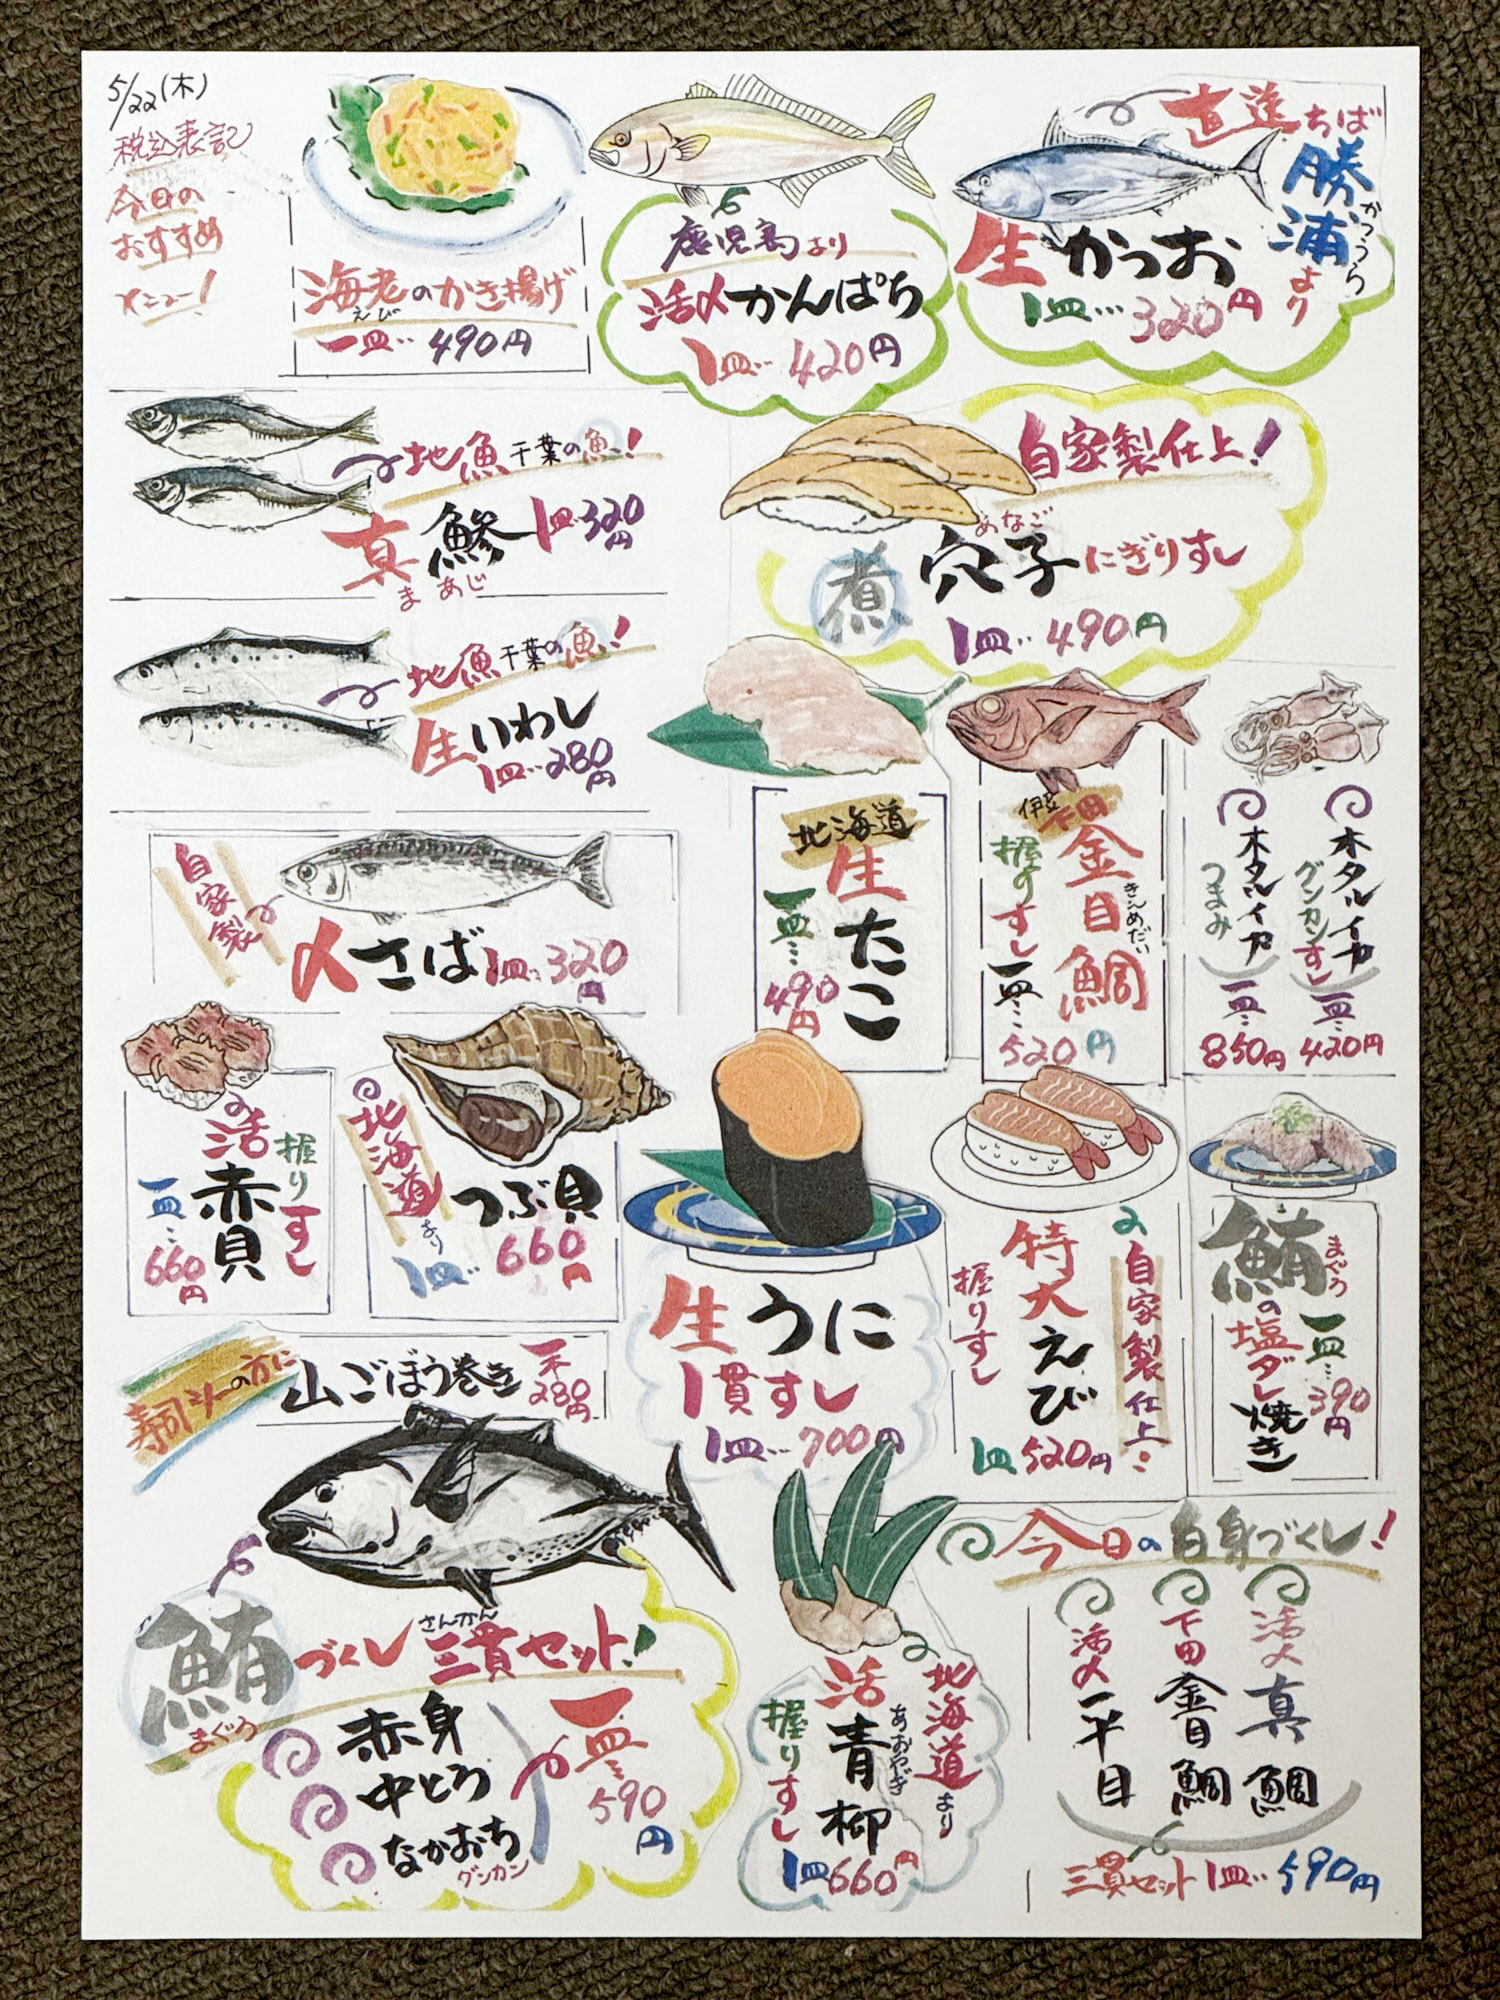 5/22(木)
税込表記
今日の
おすすめ
メニュー!
海老のかき揚げ
えび
一皿‥490円
鹿児島より
活〆かんぱち
1皿‥420円
直送ちば
勝浦より
かつうら
生かつお
1皿…320円
地魚 千葉の魚!
真鯵 1皿320円
まあじ
自家製仕上!
煮穴子にぎりすし
あなご
1皿‥490円
地魚 千葉の魚!
生いわし
1皿‥280円
北海道
生たこ
一皿‥490円
伊豆下田
金目鯛
きんめだい
握りすし
一皿‥520円
ホタルイカ
グンカンすし
一皿‥420円
ホタルイカ
つまみ
一皿‥850円
自家製
〆さば 1皿‥320円
活赤貝
握りすし
一皿‥660円
北海道より
つぶ貝
1皿‥660円
生うに
1貫すし
1皿…700円
自家製仕上‥
特大えび
握りすし
1皿520円
鮪の塩ダレ焼き
まぐろ
一皿‥390円
寿司シローの方に
山ごぼう巻き
一本280円
鮪づくし三貫セット!
まぐろ
さんかん
赤身
中とろ
なかおち
グンカン
一皿‥590円
北海道より
活青柳
あおやぎ
握りすし
1皿660円
今日の白身づくし!
活〆真鯛
下田金目鯛
活〆平目
三貫セット1皿‥590円